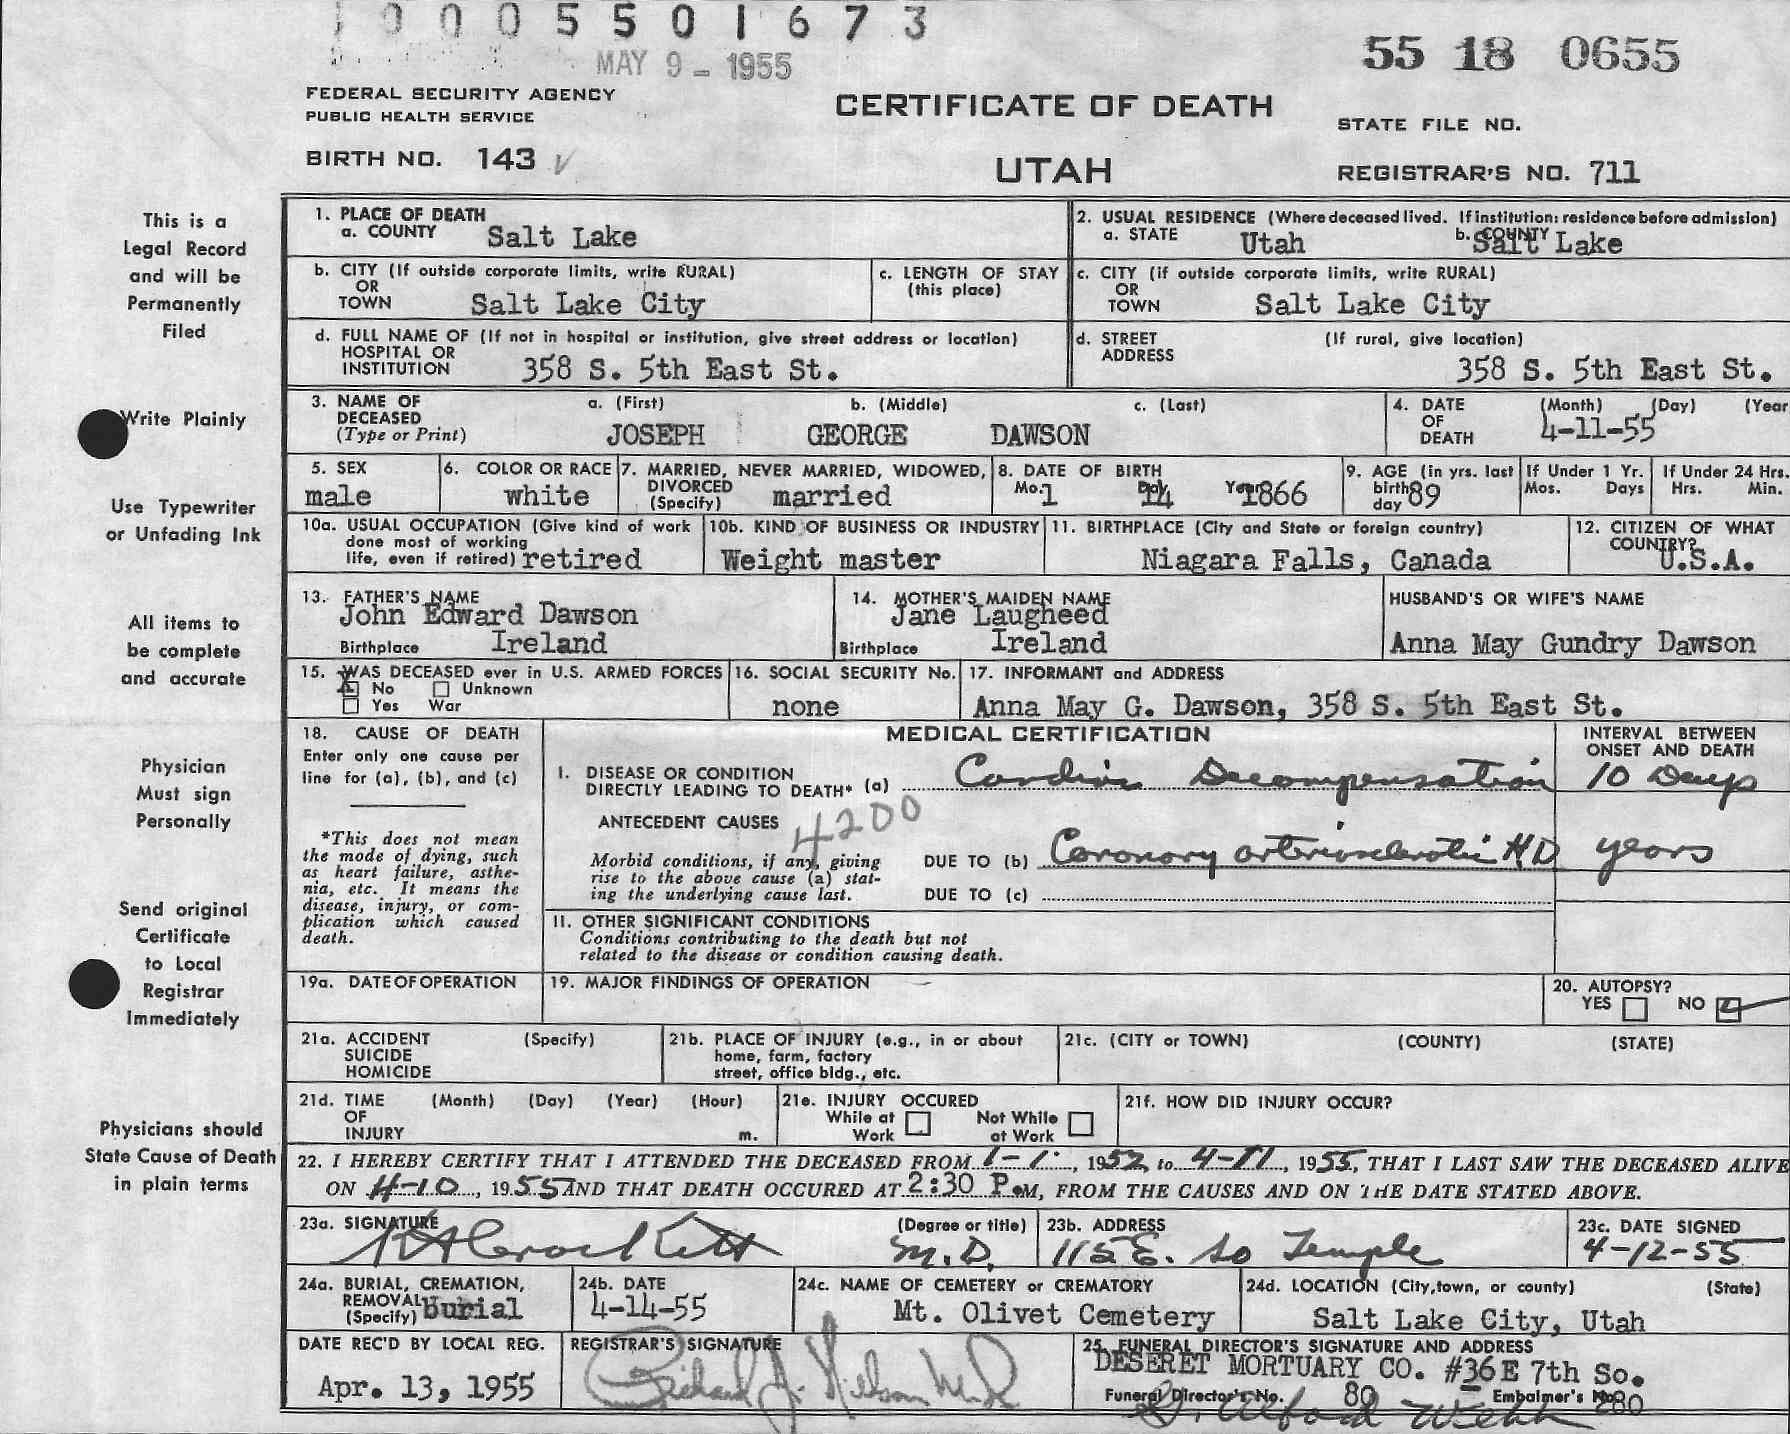 10005501673
MAY 9 - 1955
55 18 0655
FEDERAL SECURITY AGENCY
PUBLIC HEALTH SERVICE
CERTIFICATE OF DEATH
STATE FILE NO.
BIRTH NO. 143
UTAH
REGISTRAR'S NO. 711
This is a
Legal Record
and will be
Permanently
Filed
Write Plainly
Use Typewriter
or Unfading Ink
All items to
be complete
and accurate
Physician
Must sign
Personally
Send original
Certificate
to Local
Registrar
Immediately
Physicians should
State Cause of Death
in plain terms
1. PLACE OF DEATH
a. COUNTY Salt Lake
2. USUAL RESIDENCE (Where deceased lived. If institution: residence before admission)
a. STATE Utah b. COUNTY Salt Lake
b. CITY (If outside corporate limits, write RURAL)
OR
TOWN Salt Lake City
c. LENGTH OF STAY
(this place)
c. CITY (if outside corporate limits, write RURAL)
OR
TOWN Salt Lake City
d. FULL NAME OF (If not in hospital or institution, give street address or location)
HOSPITAL OR
INSTITUTION 358 S. 5th East St.
d. STREET (If rural, give location)
ADDRESS 358 S. 5th East St.
3. NAME OF DECEASED (Type or Print)
a. (First) b. (Middle) c. (Last)
JOSEPH GEORGE DAWSON
4. DATE OF DEATH (Month) (Day) (Year
4-11-55
5. SEX
male
6. COLOR OR RACE
white
7. MARRIED, NEVER MARRIED, WIDOWED,
DIVORCED
(Specify) married
8. DATE OF BIRTH
Mo. 1 Day 14 Year 1866
9. AGE (in yrs. last
birth
day 89
If Under 1 Yr.
Mos. Days
If Under 24 Hrs.
Hrs. Min.
10a. USUAL OCCUPATION (Give kind of work
done most of working
life, even if retired) retired
10b. KIND OF BUSINESS OR INDUSTRY
Weight master
11. BIRTHPLACE (City and State or foreign country)
Niagara Falls, Canada
12. CITIZEN OF WHAT
COUNTRY?
U.S.A.
13. FATHER'S NAME
John Edward Dawson
Birthplace Ireland
14. MOTHER'S MAIDEN NAME
Jane Laugheed
Birthplace Ireland
HUSBAND'S OR WIFE'S NAME
Anna May Gundry Dawson
15. WAS DECEASED ever in U.S. ARMED FORCES
No Unknown
Yes War
16. SOCIAL SECURITY No.
none
17. INFORMANT and ADDRESS
Anna May G. Dawson, 358 S. 5th East St.
18. CAUSE OF DEATH
Enter only one cause per
line for (a), (b), and (c)
*This does not mean
the mode of dying, such
as heart failure, asthe-
nia, etc. It means the
disease, injury, or com-
plication which caused
death.
MEDICAL CERTIFICATION
INTERVAL BETWEEN
ONSET AND DEATH
I. DISEASE OR CONDITION
DIRECTLY LEADING TO DEATH* (a) Cardiac Decompensation 10 Days
ANTECEDENT CAUSES 4200
Morbid conditions, if any, giving
rise to the above cause (a) stat-
ing the underlying cause last.
DUE TO (b) Coronary arteriosclerotic HD years
DUE TO (c)
II. OTHER SIGNIFICANT CONDITIONS
Conditions contributing to the death but not
related to the disease or condition causing death.
19a. DATE OF OPERATION
19. MAJOR FINDINGS OF OPERATION
20. AUTOPSY?
YES NO
21a. ACCIDENT (Specify)
SUICIDE
HOMICIDE
21b. PLACE OF INJURY (e.g., in or about
home, farm, factory
street, office bldg., etc.
21c. (CITY or TOWN) (COUNTY) (STATE)
21d. TIME (Month) (Day) (Year) (Hour)
OF
INJURY m.
21e. INJURY OCCURED
While at Not While
Work at Work
21f. HOW DID INJURY OCCUR?
22. I HEREBY CERTIFY THAT I ATTENDED THE DECEASED FROM 1-1-, 1952, to 4-11, 1955, THAT I LAST SAW THE DECEASED ALIVE
ON 4-10, 1955 AND THAT DEATH OCCURED AT 2:30 P.M, FROM THE CAUSES AND ON THE DATE STATED ABOVE.
23a. SIGNATURE (Degree or title)
Crockett M.D.
23b. ADDRESS
115 E. So Temple
23c. DATE SIGNED
4-12-55
24a. BURIAL, CREMATION,
REMOVAL
(Specify) burial
24b. DATE
4-14-55
24c. NAME OF CEMETERY or CREMATORY
Mt. Olivet Cemetery
24d. LOCATION (City, town, or county) (State)
Salt Lake City, Utah
DATE REC'D BY LOCAL REG.
Apr. 13, 1955
REGISTRAR'S SIGNATURE
Richard J. Nielson M.D.
25. FUNERAL DIRECTOR'S SIGNATURE AND ADDRESS
DESERET MORTUARY CO. #36 E 7th So.
Funeral Director's No. 80 Embalmer's No. 280
Alford Webb